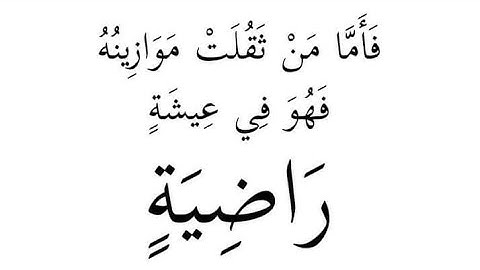 فَأَمَّا مَنْ ثَقُلَتْ مَوَازِينُهُ
فَهُوَ فِي عِيشَةٍ
رَاضِيَةٍ